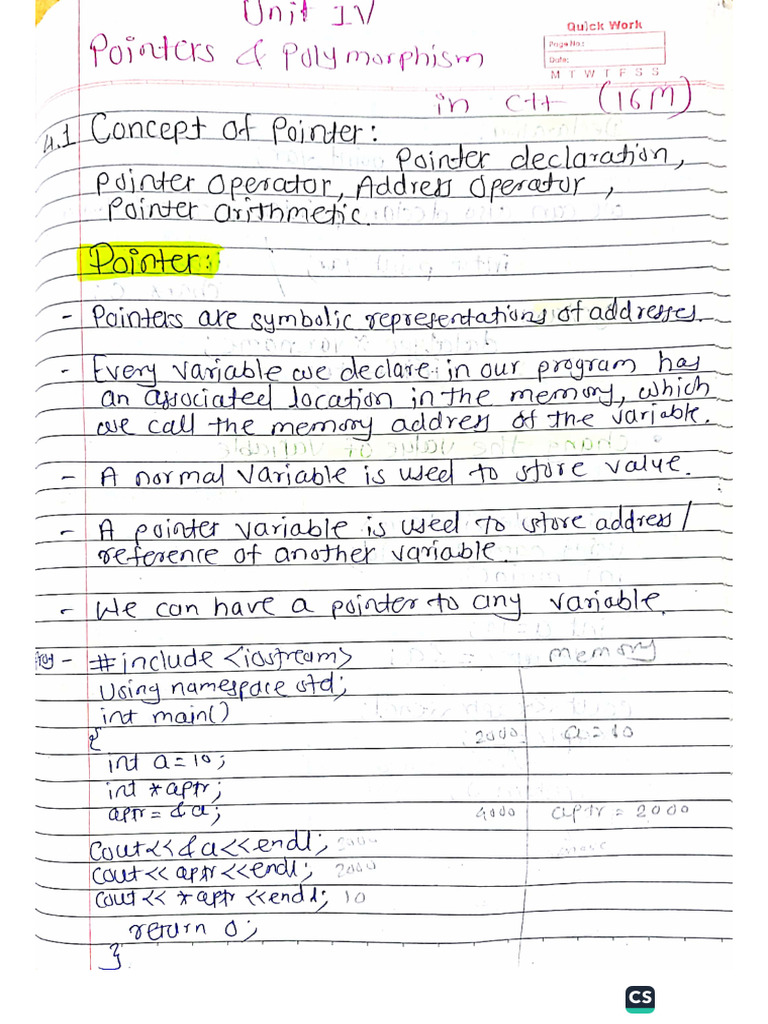 Unit IV
Quick Work
Pointers & Polymorphism
Page No.:
Date:
M T W T F S S
in C++ (16M)
4.1 Concept of Pointer:
Pointer declaration,
Pointer Operator, Address Operator,
Pointer arithmetic.
Pointer:
- Pointers are symbolic representations of addresses.
- Every variable we declare in our program has
an associated location in the memory, which
we call the memory address of the variable.
- A normal variable is used to store value.
- A pointer variable is used to store address/
reference of another variable.
- We can have a pointer to any variable.
- #include <iostream> memory
Using namespace std;
int main()
{ 2000 a=10
int a=10;
int *aptr;
aptr=&a; 4000 aptr = 2000
Cout<<&a<<endl; 2000
cout<< aptr <<endl; 2000
cout<< *aptr <<endl; 10
return 0;
}
CS